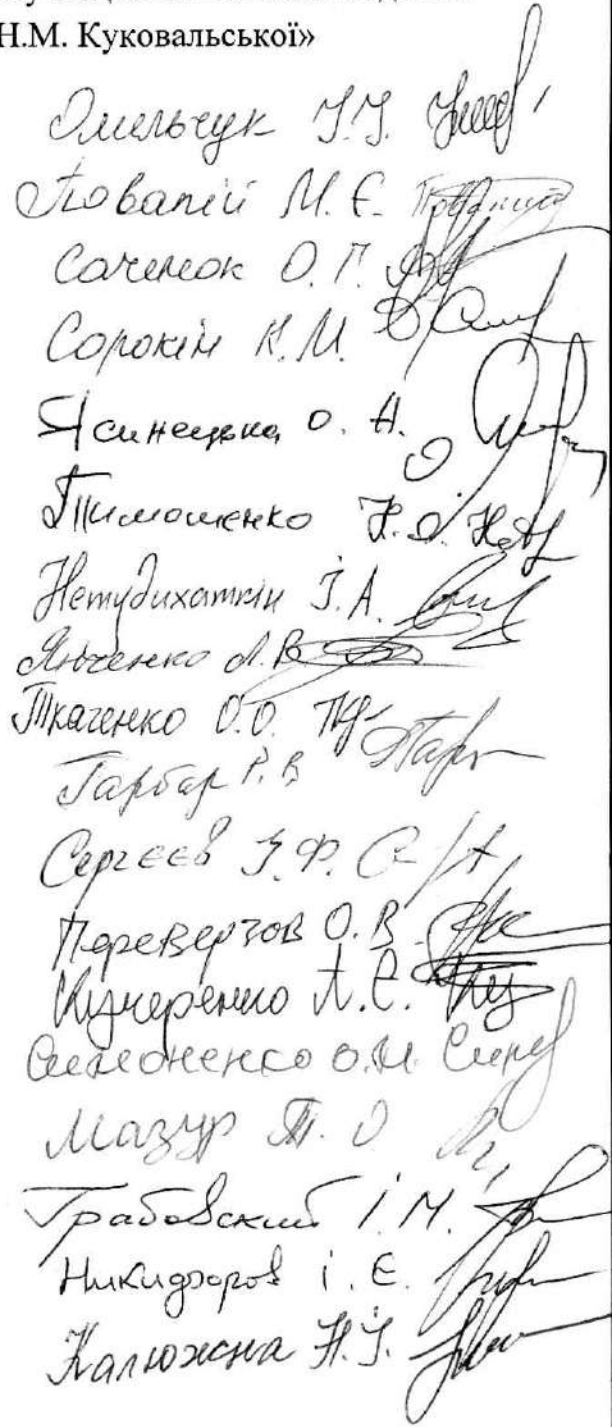 Н.М. Куковальської»
Омельчук І.І.
Повалій М.Є.
Саченок О.Г.
Сорокін К.М.
Ясинецька О. А.
Тимошенко Н.О.
Нетудихаткін І.А.
Янченко Л.В
Ткаченко О.О.
Гарбар Р.В
Сергєєв І.Ф.
Переверзов О.В
Кучеренко Л.С.
Симоненко О.М.
Мазур Т.О
Грабовский І.М.
Никифоров І.Є.
Калюжна Н.І.